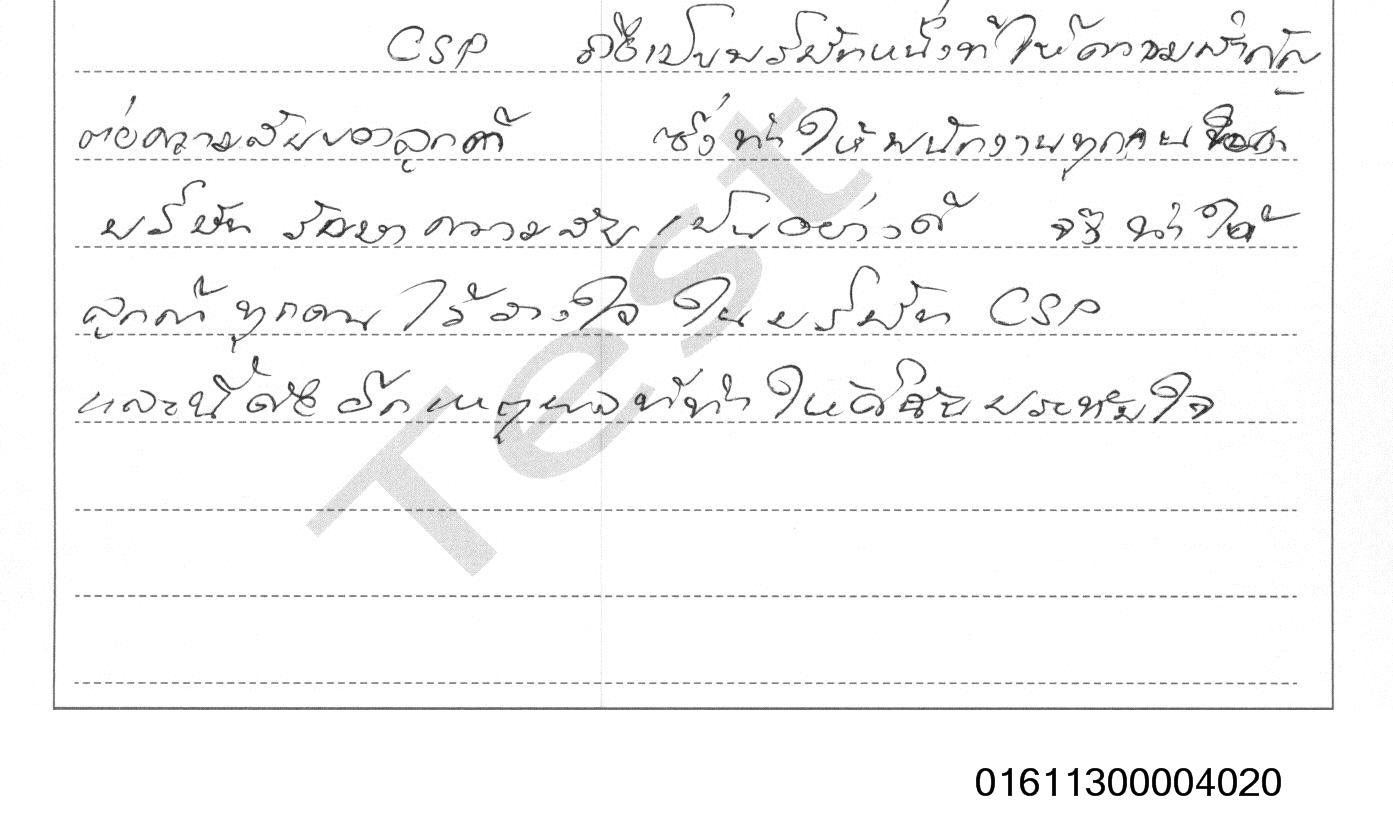 CSP ถือเป็นบริษัทหนึ่งที่ให้ความสำคัญ
ต่อความลับของลูกค้า ซึ่งทำให้พนักงานทุกคน
บริษัท รักษาความลับเป็นอย่างดี จึงทำให้
ลูกค้าทุกคนไว้วางใจในบริษัท CSP
และนี้คืออีกเหตุผลที่ทำให้ ประทับใจ
Test
01611300004020